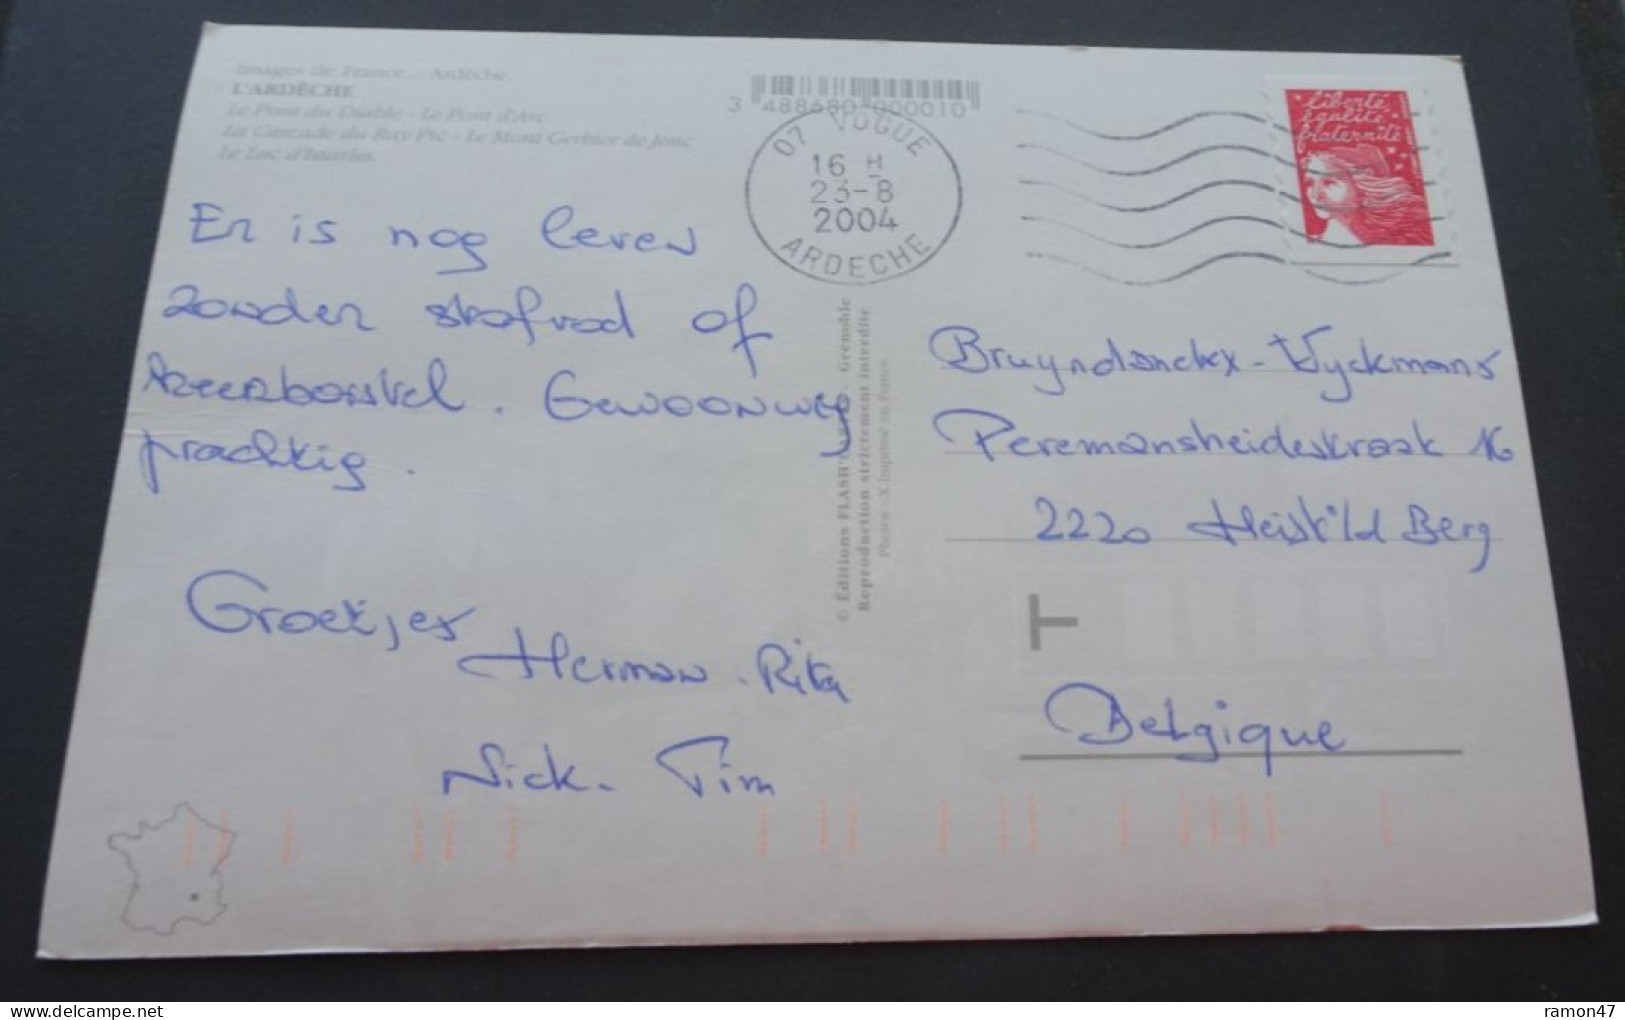 Images de France... Ardèche.
L'ARDÈCHE
Le Pont du Diable - Le Pont d'Arc
La Cascade du Ray Pic - Le Mont Gerbier de Jonc
Le Lac d'Issarlès.
3 488680 000010
07 VOGUE
16 H
23-8
2004
ARDECHE
liberté
égalité
fraternité
Er is nog leven
zonder skafrad of
keerborstel. Gewoonweg
prachtig.
Groetjes
Herman - Rita
Nick - Tim
© Éditions FLASH Grenoble
Reproduction strictement interdite
Photos - X Imprimé en France
Bruyndonckx - Wyckmans
Peremansheidestraat 16
2220 Heist o/d Berg
T
Belgique
ramon47